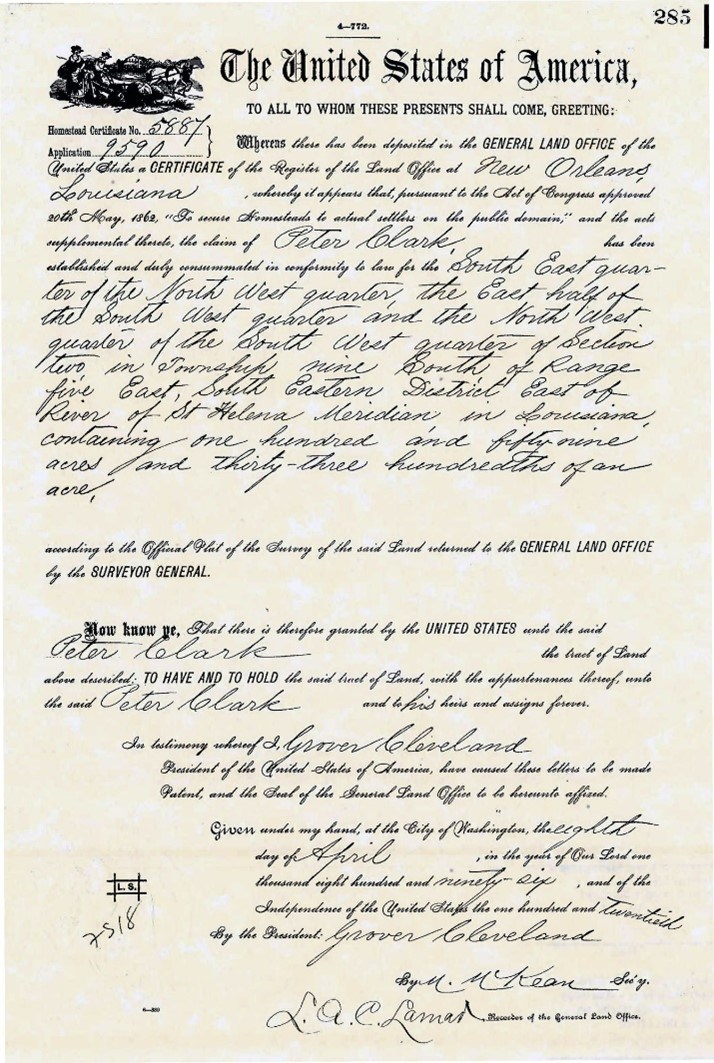 285
4—772.
The United States of America,
TO ALL TO WHOM THESE PRESENTS SHALL COME, GREETING:
Homestead Certificate No. 5887
Application 9590
Whereas there has been deposited in the GENERAL LAND OFFICE of the
United States a CERTIFICATE of the Register of the Land Office at New Orleans,
Louisiana , whereby it appears that, pursuant to the Act of Congress approved
20th May, 1862, "To secure Homesteads to actual settlers on the public domain," and the acts
supplemental thereto, the claim of Peter Clark, has been
established and duly consummated in conformity to law for the South East quar-
ter of the North West quarter, the East half of
the South West quarter and the North West
quarter of the South West quarter of Section
two, in Township nine South of Range
five East, South Eastern District East of
River of St Helena Meridian in Louisiana,
containing one hundred and fifty-nine
acres and thirty-three hundredths of an
acre,
according to the Official Plat of the Survey of the said Land returned to the GENERAL LAND OFFICE
by the SURVEYOR GENERAL.
Now know ye, That there is therefore granted by the UNITED STATES unto the said
Peter Clark the tract of Land
above described; TO HAVE AND TO HOLD the said tract of Land, with the appurtenances thereof, unto
the said Peter Clark and to his heirs and assigns forever.
In testimony whereof I, Grover Cleveland
President of the United States of America, have caused these letters to be made
Patent, and the Seal of the General Land Office to be hereunto affixed.
Given under my hand, at the City of Washington, the eighth
day of April , in the year of Our Lord one
thousand eight hundred and ninety-six , and of the
Independence of the United States the one hundred and twentieth
L. S.
By the President: Grover Cleveland
By M. McKean Sec'y.
6—330
L. Q. C. Lamar, Recorder of the General Land Office.